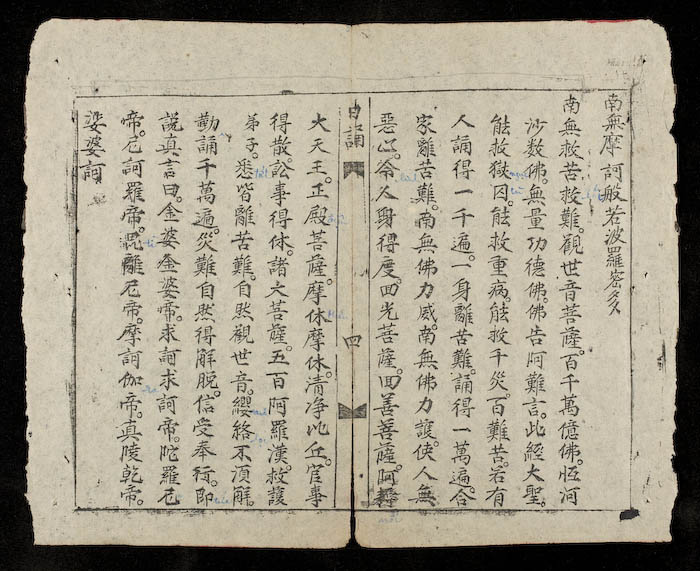 南無摩訶般若波羅密多
南無救苦救難。觀世音菩薩。百千萬億佛。恆河
沙数佛。無量功德佛。佛告阿難言。此經大聖。
能救獄囚。能救重病。能救千災百難苦。若有
人誦得一千遍。一身離苦難。誦得一萬遍。合
家離苦難。南無佛力威。南無佛力護。使人無
惡心。令人身得度。回光菩薩。回善菩薩。阿
日誦 四
大天王。正殿菩薩。摩休摩休。清净比丘。官事
得散。訟事得休。諸大菩薩。五百阿羅漢。救護
弟子。悉皆離苦難。自然觀世音。纓絡不須解。
勤誦千萬遍。災難自然得解脱。信受奉行。即
說真言曰。金婆金婆帝。求訶求訶帝。陀羅尼
帝。尼訶羅帝。毘離尼帝。摩訶伽帝。真陵乾帝。
娑婆訶